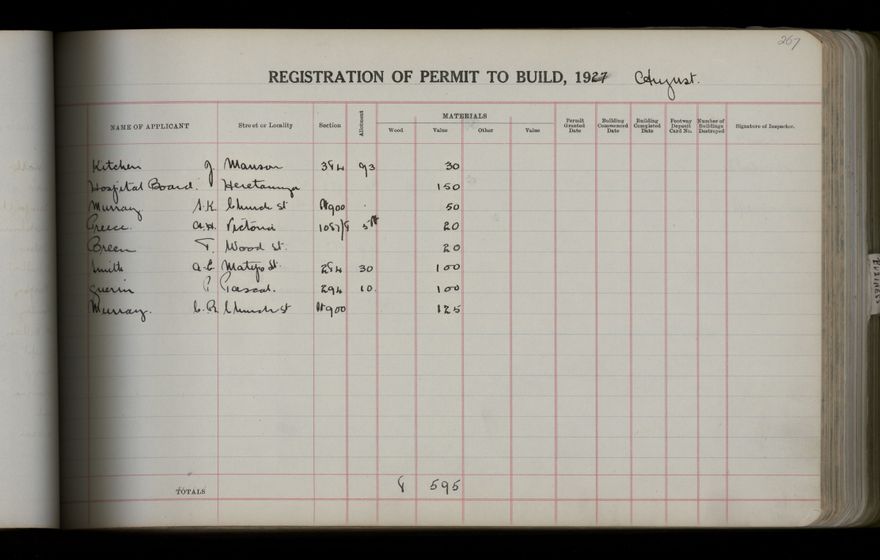 267
REGISTRATION OF PERMIT TO BUILD, 1927 August.
MATERIALS
NAME OF APPLICANT Street or Locality Section Allotment Wood Value Other Value Permit Granted Date Building Commenced Date Building Completed Date Footway Deposit Card No. Number of Buildings Destroyed Signature of Inspector.
Kitchen J Manson 384 93 30
Hospital Board. Heretaunga 150
Murray Church st 900 50
A.H. Victoria 1087/8 20
Green T. Wood st. 20
Smith A.E. Matipo St. 284 30 100
Guerin P Pascal. 294 10. 100
Murray. Church st 900 125
TOTALS 8 595
BUSINESS